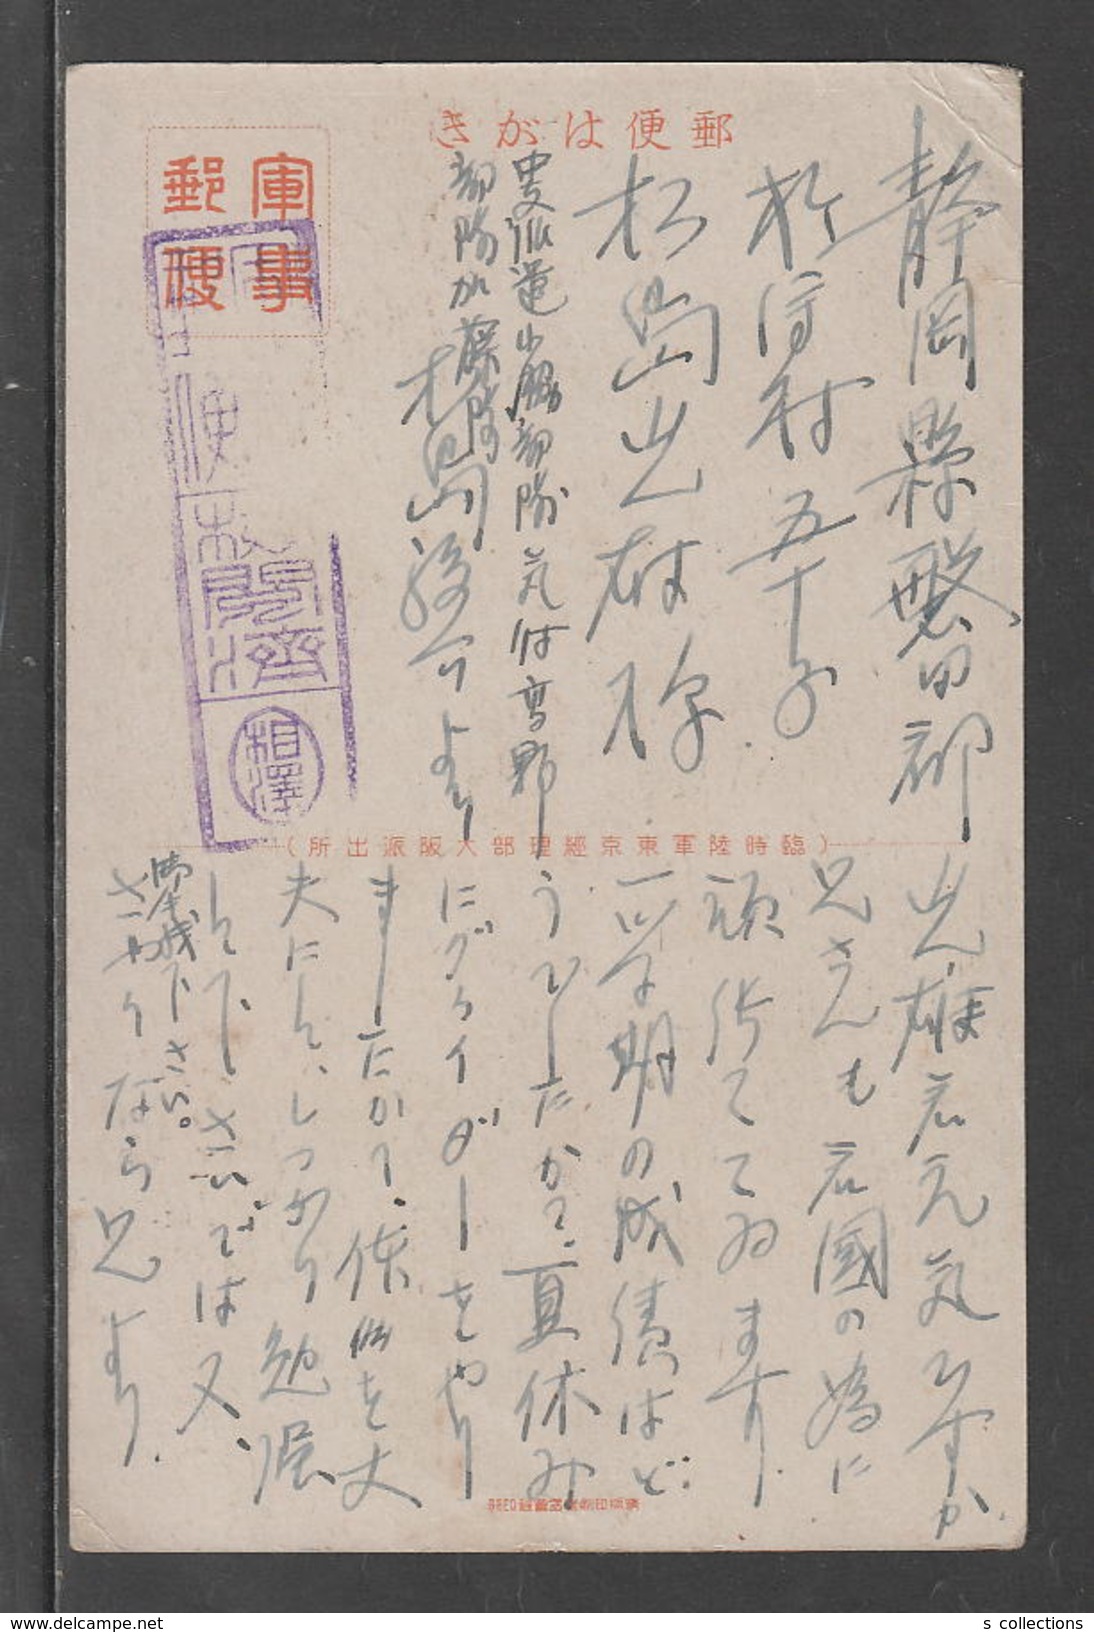 郵便はがき
軍事
郵便
静岡縣磐田郡
於保村五十子
松島光雄様
中支派遣小脇部隊気付高野
部隊加藤隊
松島
より
検閲済
相澤
（臨時陸軍東京經理部大阪派出所）
光雄君元気ですか
兄さんも君國の為に
頑張ってゐます
一学期の成績はど
うでしたか、夏休み
にグライダーをやり
ましたか、体を丈
夫にし、しっかり勉強
して下さい、では又
御本戦下さい。
さやうなら 兄より
s collections